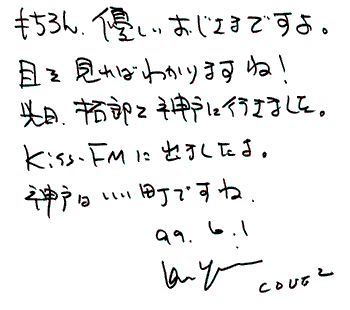 もちろん、優しいおじさまですよ。
目を見ればわかりますね!
先日、拓郎と神戸に行きました。
Kiss-FMに出ましたよ。
神戸はいい町ですね.
99.6.1
COUE2